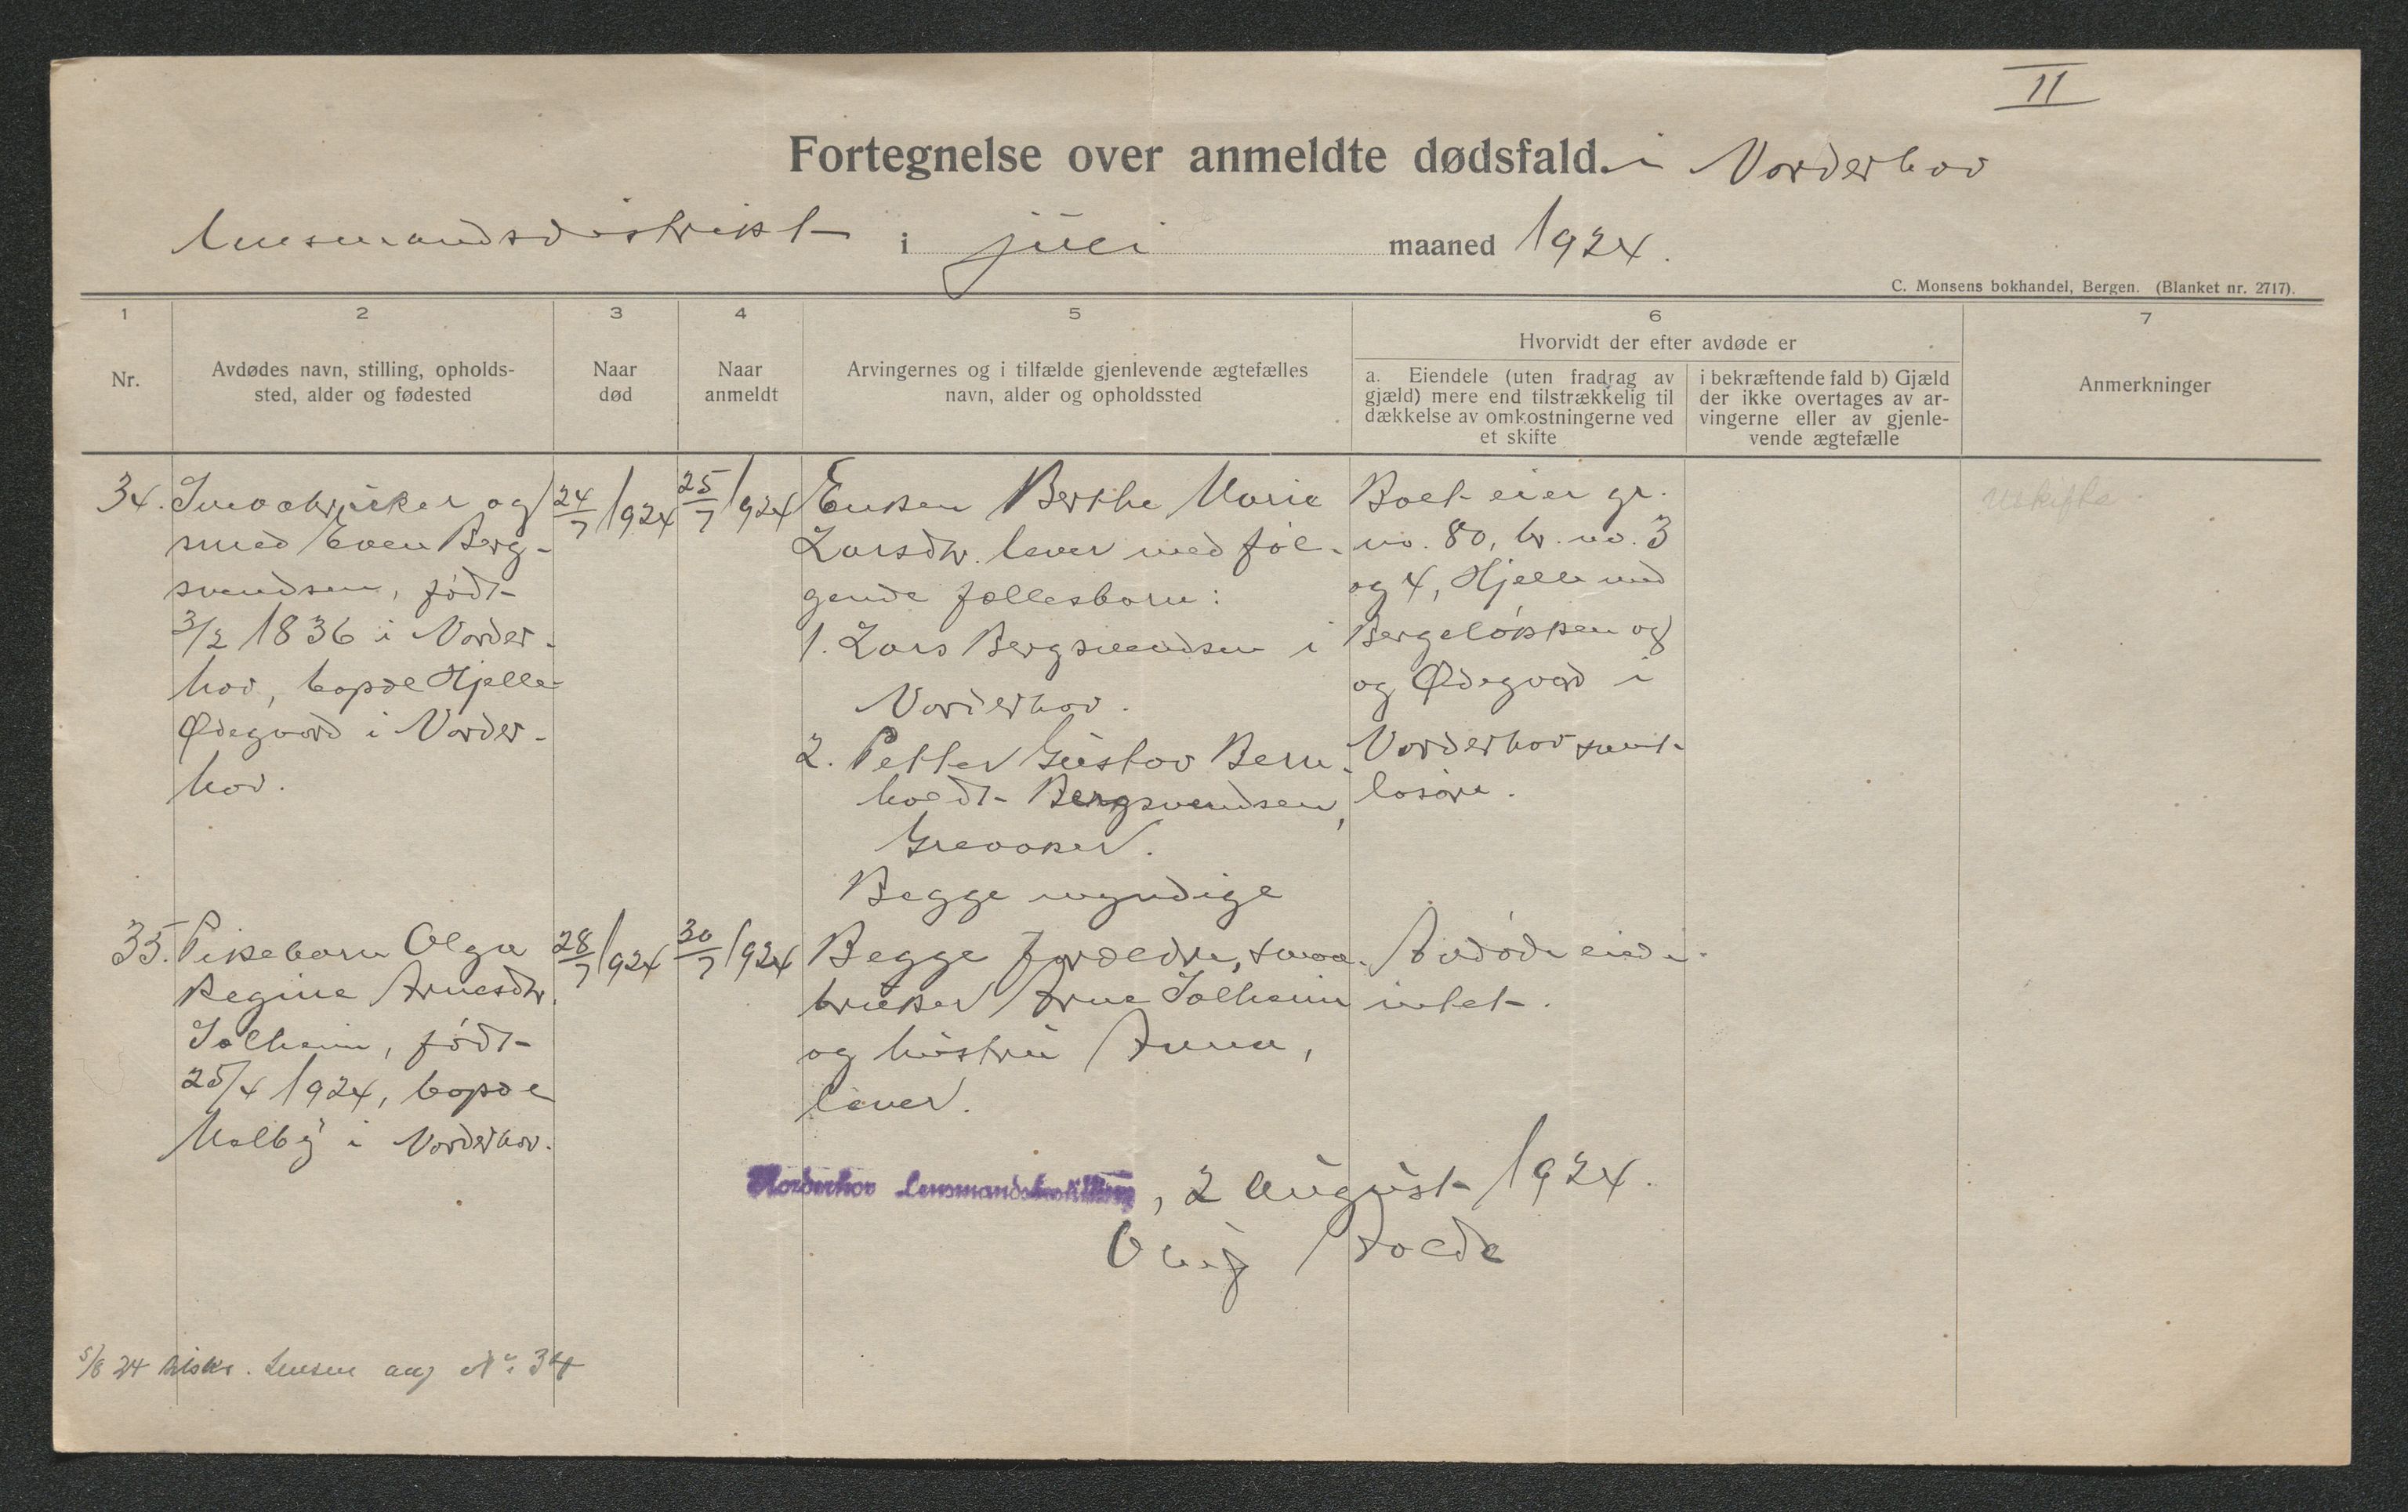 II
Fortegnelse over anmeldte dødsfald. i Norderhov
lensmandsdistrikt i juli maaned 1924.
C. Monsens bokhandel, Bergen. (Blanket nr. 2717).
1 2 3 4 5 6 7
Hvorvidt der efter avdøde er
Nr.
Avdødes navn, stilling, opholds-
sted, alder og fødested
Naar
død
Naar
anmeldt
Arvingernes og i tilfælde gjenlevende ægtefælles
navn, alder og opholdssted
a. Eiendele (uten fradrag av
gjæld) mere end tilstrækkelig til
dækkelse av omkostningerne ved
et skifte
i bekræftende fald b) Gjæld
der ikke overtages av ar-
vingerne eller av gjenle-
vende ægtefælle
Anmerkninger
34.
Smaabruker og
smed Even Berg-
svendsen, født
3/2 1836 i Norder-
hov, bopæl Hjelle-
Ødegaard i Norder-
hov.
24/7 1924
25/7 1924
Enken Berthe Marie
Larsdtr. lever med føl-
gende fællesbarn:
1. Lars Bergsvendsen i
Norderhov.
2. Petter Gustav Bern-
hardt Bergsvendsen,
Greaaker.
Begge myndige
Boet eier gr.
no. 80, br. no. 3
og 4, Hjelle med
Bergeløkken og
og Ødegaard i
Norderhov samt
løsøre.
Uskifte.
35.
Pikebarn Olga
Regine Arnesdtr.
Solheim, født
25/4 1924, bopæl
Malby i Norderhov.
28/7 1924
30/7 1924
Begge forældre, smaa-
bruker Arne Solheim
og hustru Anna,
lever.
Avdøde eiede
intet.
Norderhov lensmandsbestilling, 2 august 1924.
5/8 24 tilskr. Lensm ang No 34